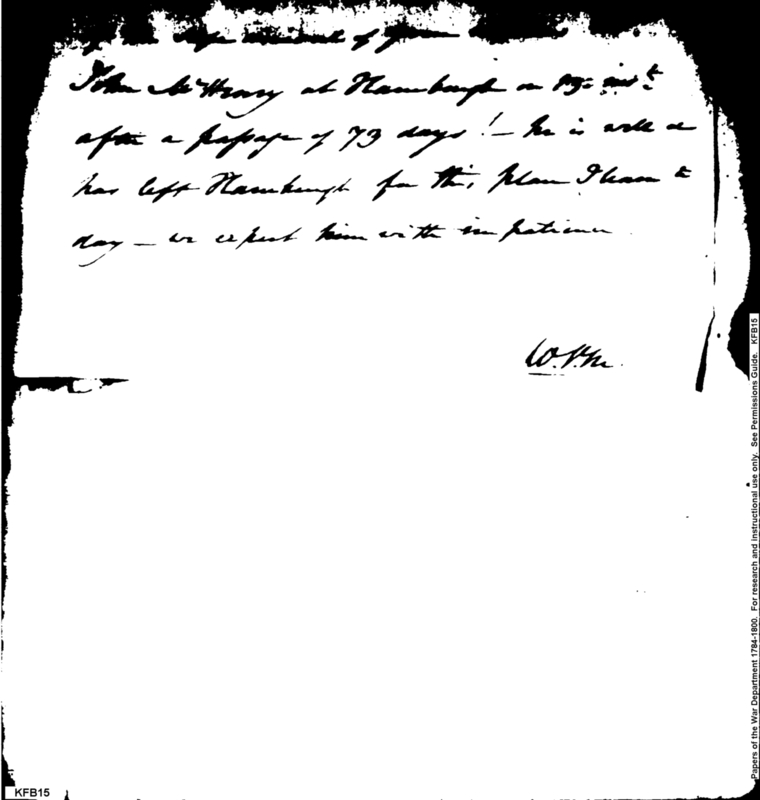 of the safe arrival of your
John McHenry at Hamburgh on 13 inst
after a passage of 73 days! - he is well &
has left Hamburgh for this place I learn to
day - we expect him with impatience
W.V.M.
KFB15
Papers of the War Department 1784-1800. For research and instructional use only. See Permissions Guide. KFB15